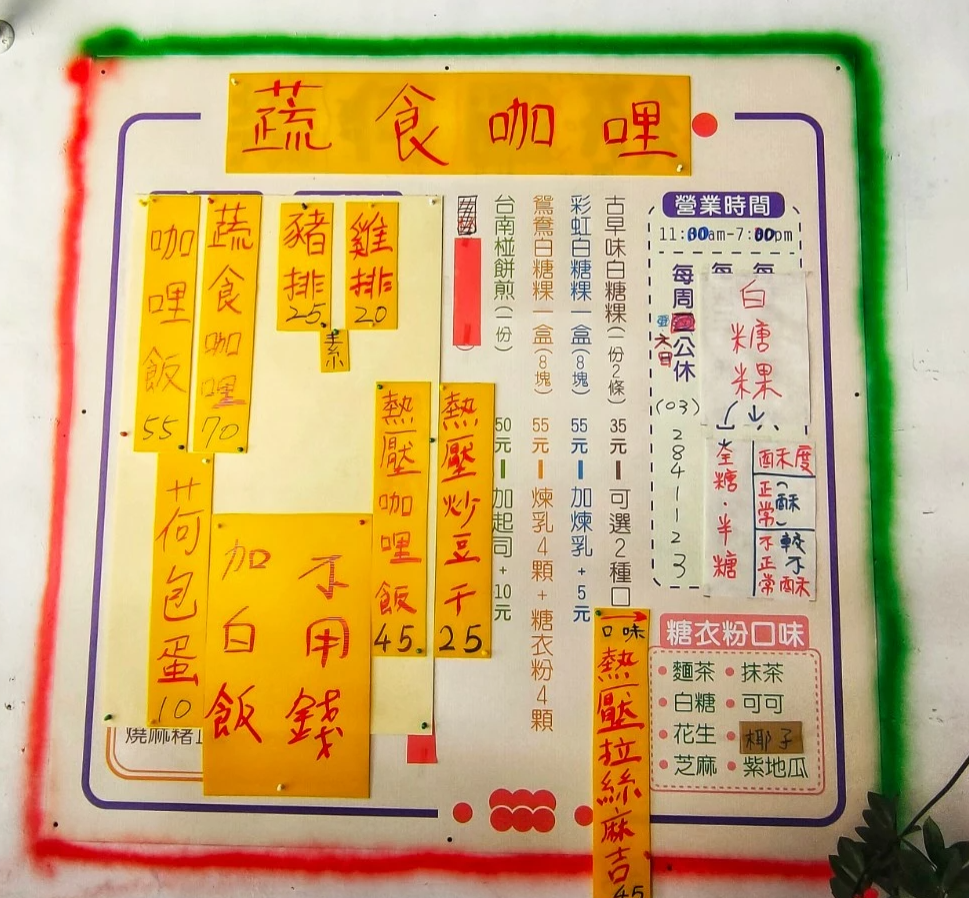 蔬食咖哩
營業時間
11:00am-7:00pm
每周
公休
六日
(03)
2841123
白糖粿
全糖・半糖
酥度
正常(酥)
較不酥
不正常
糖衣粉口味
麵茶
抹茶
白糖
可可
花生
椰子
芝麻
紫地瓜
古早味白糖粿(一份2條) 35元 可選2種口
彩虹白糖粿一盒(8塊) 55元 加煉乳+5元
鴛鴦白糖粿一盒(8塊) 55元 煉乳4顆+糖衣粉4顆
台南椪餅煎(一份) 50元 加起司+10元
口味
熱壓拉絲麻吉
45
熱壓炒豆干25
熱壓咖哩飯45
雞排20
豬排25
素
蔬食咖哩70
咖哩飯55
荷包蛋10
不用錢
加白飯
燒麻糬